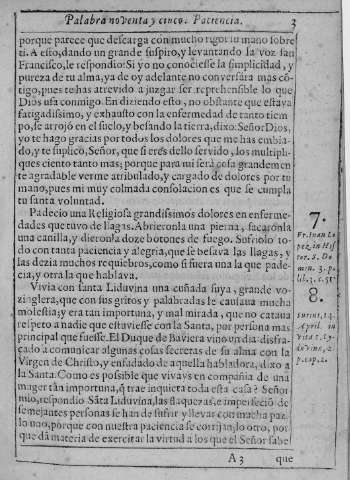 Palabra noventa y cinco. Paciencia. 3
porque parece que descarga con mucho rigor tu mano sobre
ti. A esto, dando un grande suspiro, y levantando la voz san
Francisco, le respondio: Si yo no conociesse la simplicidad, y
pureza de tu alma, ya de oy adelante no conversára mas cō-
tigo, pues te has atrevido a juzgar ser reprehensible lo que
Dios usa conmigo. En diziendo esto, no obstante que estava
fatigadissimo, y exhausto con la enfermedad de tanto tiem-
po, se arrojó en el suelo, y besando la tierra, dixo: Señor Dios,
yo te hago gracias por todos los dolores que me has embia-
do, y te suplico, Señor, que si eres dello servido, los multipli-
ques ciento tanto mas; porque para mi será cosa grandemen-
te agradable verme atribulado, y cargado de dolores por tu
mano, pues mi muy colmada consolacion es que se cumpla
tu santa voluntad.
Padecio una Religiosa grandissimos dolores en enferme-
dades que tuvo de llagas. Abrieronla una pierna, sacaronla
una canilla, y dieronla doze botones de fuego. Sufriolo to-
do con tanta paciencia y alegria, que se besava las llagas, y
las dezia muchos requiebros, como si fuera una la que pade-
cia, y otra la que hablava.
Vivia con santa Liduvina una cuñada suya, grande vo-
zinglera, que con sus gritos y palabradas le causava mucha
molestia; y era tan importuna, y mal mirada, que no catava
respeto a nadie que estuviesse con la Santa, por persona mas
principal que fuesse. El Duque de Baviera vino un dia disfra-
çado a comunicar algunas cosas secretas de su alma con la
Virgen de Christo, y enfadado de aquella habladora, dixo a
la Santa. Como es possible que vivays en compañia de una
muger tan importuna, q̄ trae inquieta toda esta casa? Señor
mio, respondio Sāta Liduvina, las flaquezas, e imperfeciō de
semejantes personas se han de sufrir y llevar con mucha paz.
lo uno, porque con nuestra paciencia se corrijan; lo otro, por
que dā materia de exercitar la virtud a los que el Señor sabe
A 3 que
7.
Fr. Juan Lo
pez, in His
tor. S. Do
min. 3. p.
lib. 3. c. 51
8.
Surius, 14.
April. in
vita s. Ly-
duvinæ, 2.
p. cap. 2.